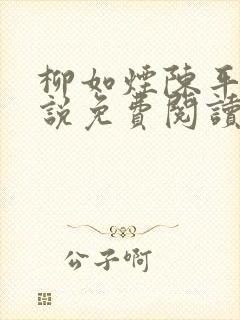 柳如煙陳平
說免費閱讀
公子啊